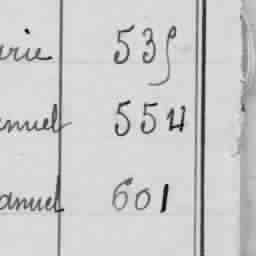 arie 535
anuel 554
anuel 601